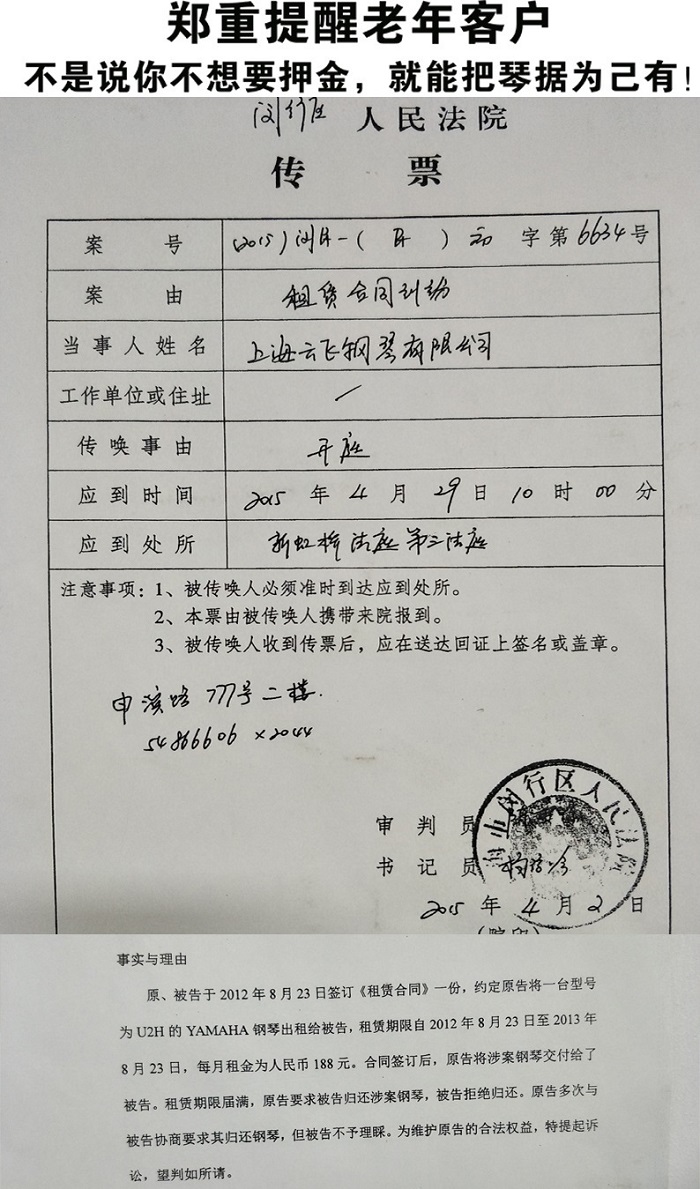 郑重提醒老年客户
不是说你不想要押金，就能把琴据为己有！
闵行区 人民法院
传 票
案 号 (2015)闵民一(民)初 字第6634号
案 由 租赁合同纠纷
当事人姓名 上海云飞钢琴有限公司
工作单位或住址 /
传唤事由 开庭
应到时间 2015 年 4 月 29 日 10 时 00 分
应到处所 新虹桥法庭第三法庭
注意事项：1、被传唤人必须准时到达应到处所。
2、本票由被传唤人携带来院报到。
3、被传唤人收到传票后，应在送达回证上签名或盖章。
申滨路 777号二楼.
54866606×2044
审 判 员
书 记 员
海市闵行区人民法院
2015 年 4 月 2 日
(院印)
事实与理由
原、被告于 2012 年 8 月 23 日签订《租赁合同》一份，约定原告将一台型号
为 U2H 的 YAMAHA 钢琴出租给被告，租赁期限自 2012 年 8 月 23 日至 2013 年
8 月 23 日，每月租金为人民币 188 元。合同签订后，原告将涉案钢琴交付给了
被告。租赁期限届满，原告要求被告归还涉案钢琴，被告拒绝归还。原告多次与
被告协商要求其归还钢琴，但被告不予理睬。为维护原告的合法权益，特提起诉
讼，望判如所请。